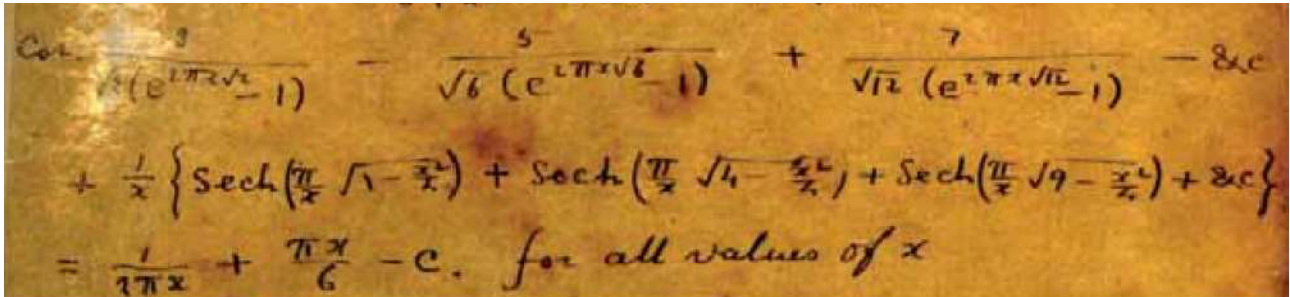 Cor. 3/(√2(e^{2πx√2} - 1)) - 5/(√6 (e^{2πx√6} - 1)) + 7/(√12 (e^{2πx√12} - 1)) - &c
+ 1/x {Sech(π/x √(1 - x²/4)) + Sech(π/x √(4 - x²/4)) + Sech(π/x √(9 - x²/4)) + &c}
= 1/(2πx) + πx/6 - C. for all values of x